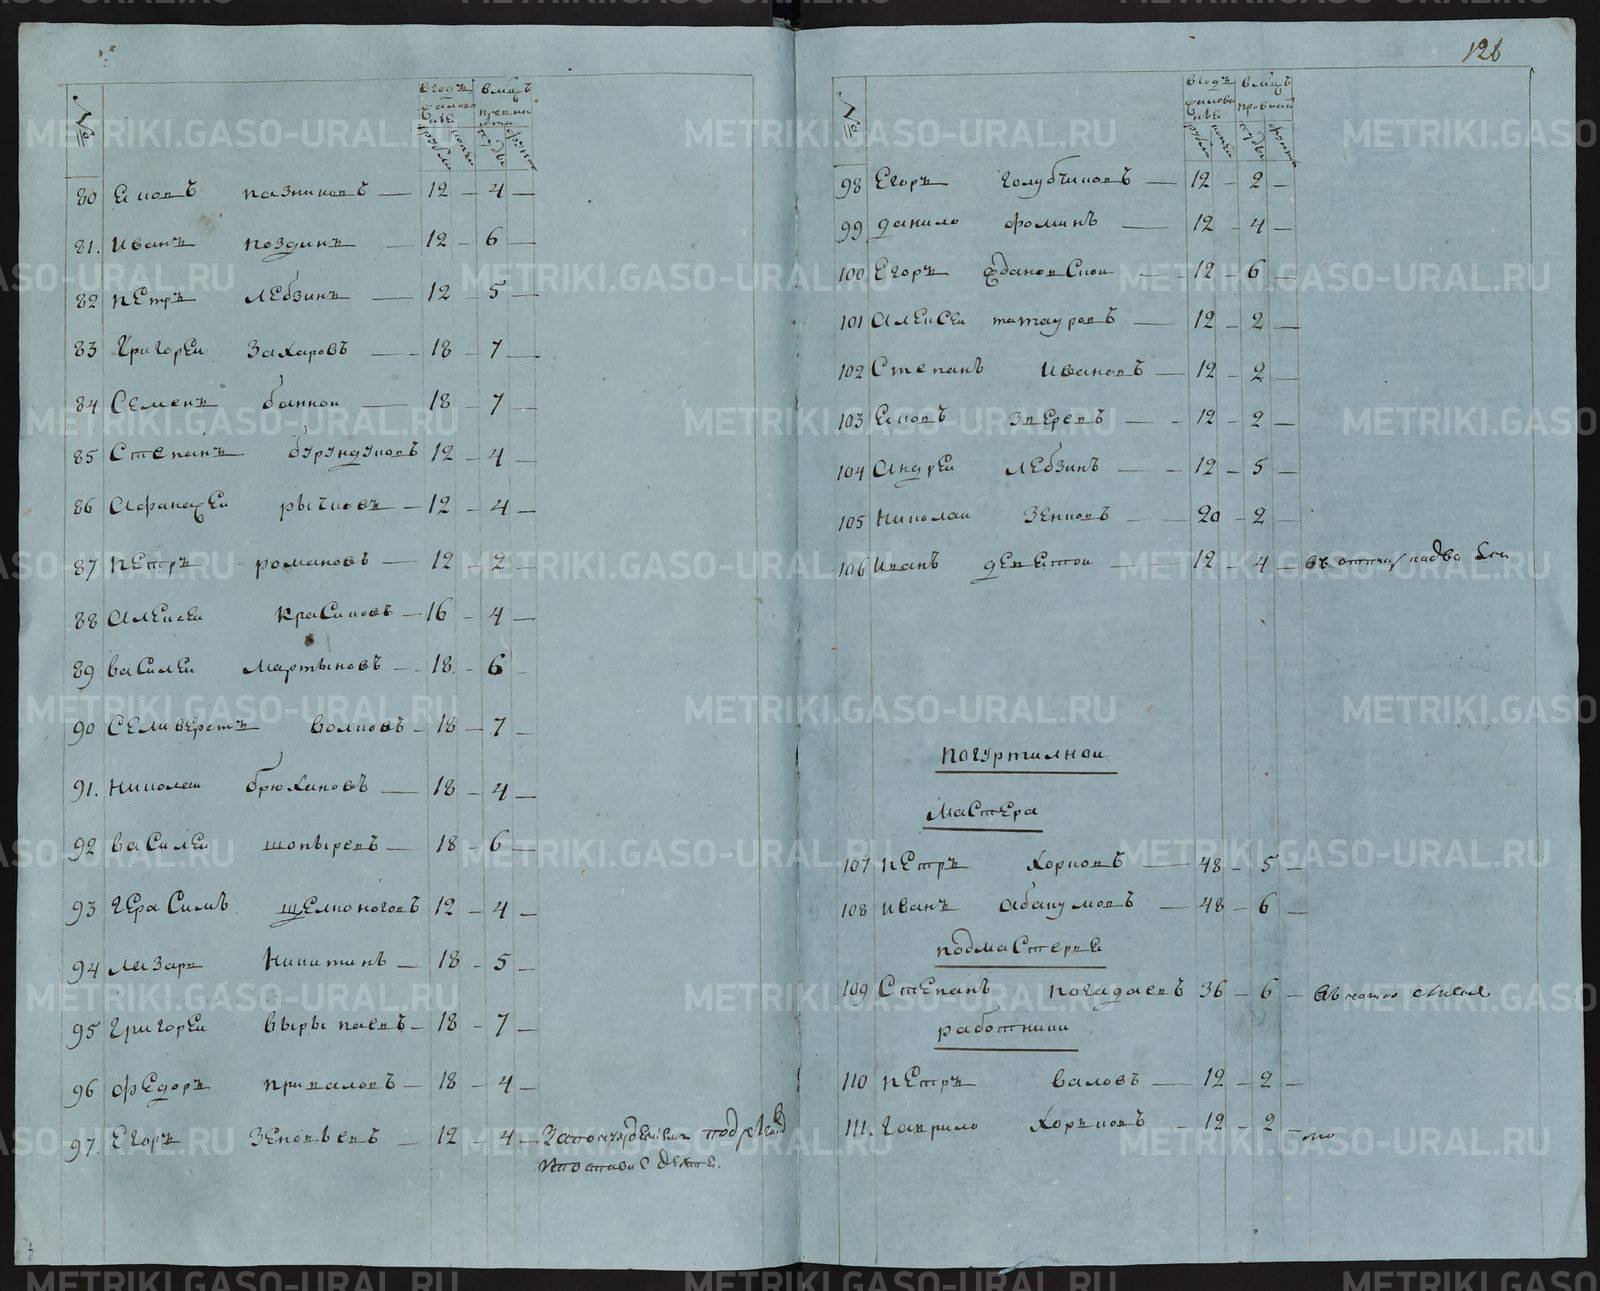 126
№
в годъ жалованье
рубли
копеи
в мцъ провиянта
пуды
фунты
80 Яковъ Казниковъ — 12 — 4 —
81. Иванъ Поздинъ — 12 — 6 —
82 Петръ Лебзинъ — 12 — 5 —
83 Григореи Захаровъ — 18 — 7 —
84 Семенъ Баннои — 18 — 7 —
85 Степанъ Бурундуковъ 12 — 4 —
86 Афанасеи Рычковъ — 12 — 4 —
87 Петръ Романовъ — 12 — 2 —
88 Алексеи Красиковъ — 16 — 4 —
89 Василеи Мартыновъ — 18 — 6 —
90 Селиверстъ Волковъ — 18 — 7 —
91. Николаи Брюхановъ — 18 — 4 —
92 Василеи Шопыревъ — 18 — 6 —
93 Герасимъ Щелконоговъ 12 — 4 —
94 Лазарь Никитинъ — 18 — 5 —
95 Григореи Вырыпаевъ — 18 — 7 —
96 Федоръ Приваловъ — 18 — 4 —
97. Егоръ Зеновьевъ — 12 — 4 —
№
в годъ жалованье
рубли
копеи
в мцъ провиянта
пуды
фунты
98 Егоръ Голубчиковъ — 12 — 2 —
99 Данило Фоминъ — 12 — 4 —
100 Егоръ Ждановскои — 12 — 6 —
101 Алексеи Татауровъ — 12 — 2 —
102 Степанъ Ивановъ — 12 — 2 —
103 Яковъ Зверевъ — 12 — 2 —
104 Андреи Лебзинъ — 12 — 5 —
105 Николаи Зенковъ — 20 — 2 —
106 Иванъ Девятои — 12 — 4 —
Погуртилнои
Мастера
107 Петръ Хорковъ — 48 — 5 —
108 Иванъ Абакумовъ — 48 — 6 —
Подмастерье
109 Степанъ Погадаевъ 36 — 6 —
работники
110 Петръ Валовъ — 12 — 2 —
111. Гаврило Хорьковъ — 12 — 2 —
METRIKI.GASO-URAL.RU